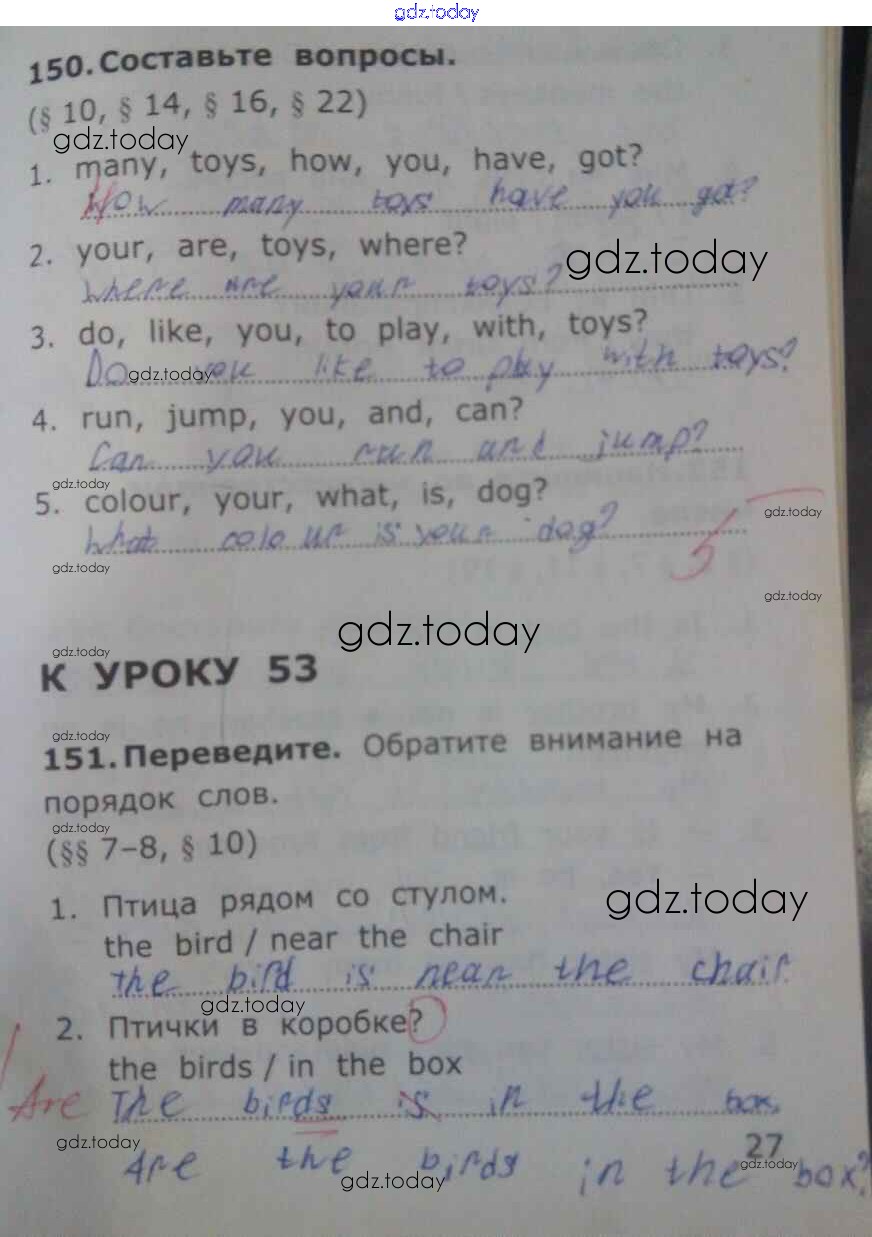 gdz.today
150. Составьте вопросы.
(§ 10, § 14, § 16, § 22)
gdz.today
1. many, toys, how, you, have, got?
How many toys have you got?
2. your, are, toys, where?
gdz.today
Where are your toys?
3. do, like, you, to play, with, toys?
Do you like to play with toys?
gdz.today
4. run, jump, you, and, can?
Can you run and jump?
gdz.today
5. colour, your, what, is, dog?
gdz.today
What colour is your dog?
5
gdz.today
gdz.today
gdz.today
gdz.today
К УРОКУ 53
gdz.today
151. Переведите. Обратите внимание на
порядок слов.
gdz.today
(§§ 7–8, § 10)
1. Птица рядом со стулом.
gdz.today
the bird / near the chair
The bird is near the chair.
gdz.today
2. Птички в коробке?
the birds / in the box
Are The birds is in the box.
gdz.today
27
Are the birds in the box?
gdz.today
gdz.today